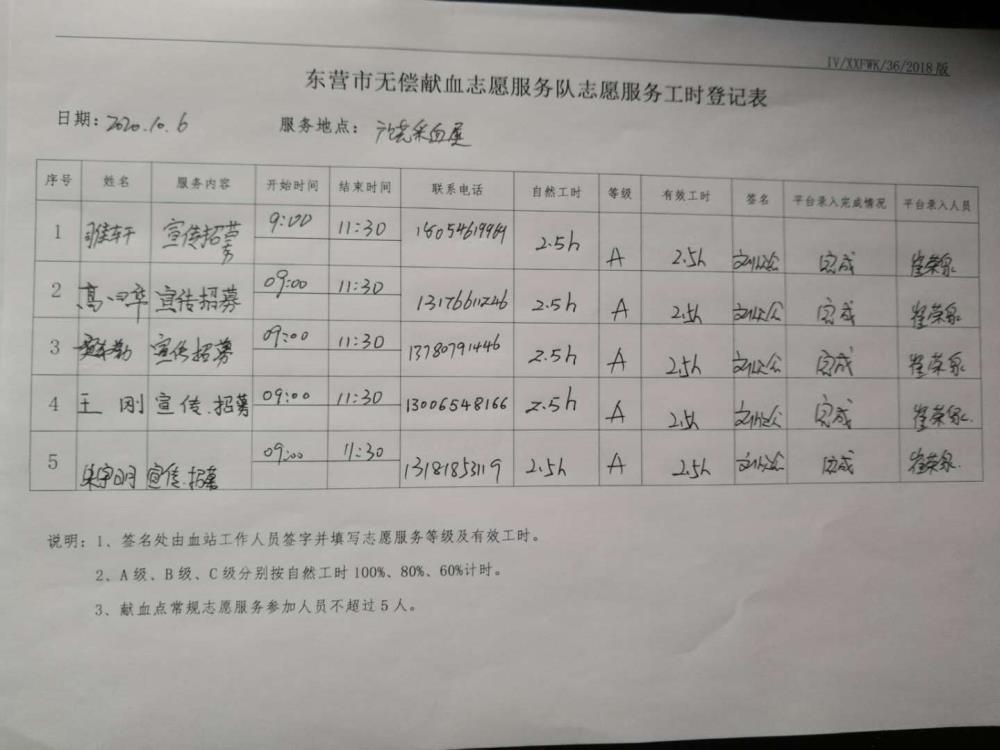 IV/XXFWK/36/2018版
东营市无偿献血志愿服务队志愿服务工时登记表
日期：2020.10.6 服务地点：采血屋
序号 姓名 服务内容 开始时间 结束时间 联系电话 自然工时 等级 有效工时 签名 平台录入完成情况 平台录入人员
1 宣传招募 9:00 11:30 2.5h A 2.5h 完成 崔荣泉
2 宣传招募 09:00 11:30 2.5h A 2.5h 完成 崔荣泉
3 宣传招募 09:00 11:30 13780791446 2.5h A 2.5h 完成 崔荣泉
4 王刚 宣传.招募 09:00 11:30 13006548166 2.5h A 2.5h 完成 崔荣泉
5 宣传.招募 09:00 11:30 13181853119 2.5h A 2.5h 完成 崔荣泉
说明：1、签名处由血站工作人员签字并填写志愿服务等级及有效工时。
2、A级、B级、C级分别按自然工时100%、80%、60%计时。
3、献血点常规志愿服务参加人员不超过5人。